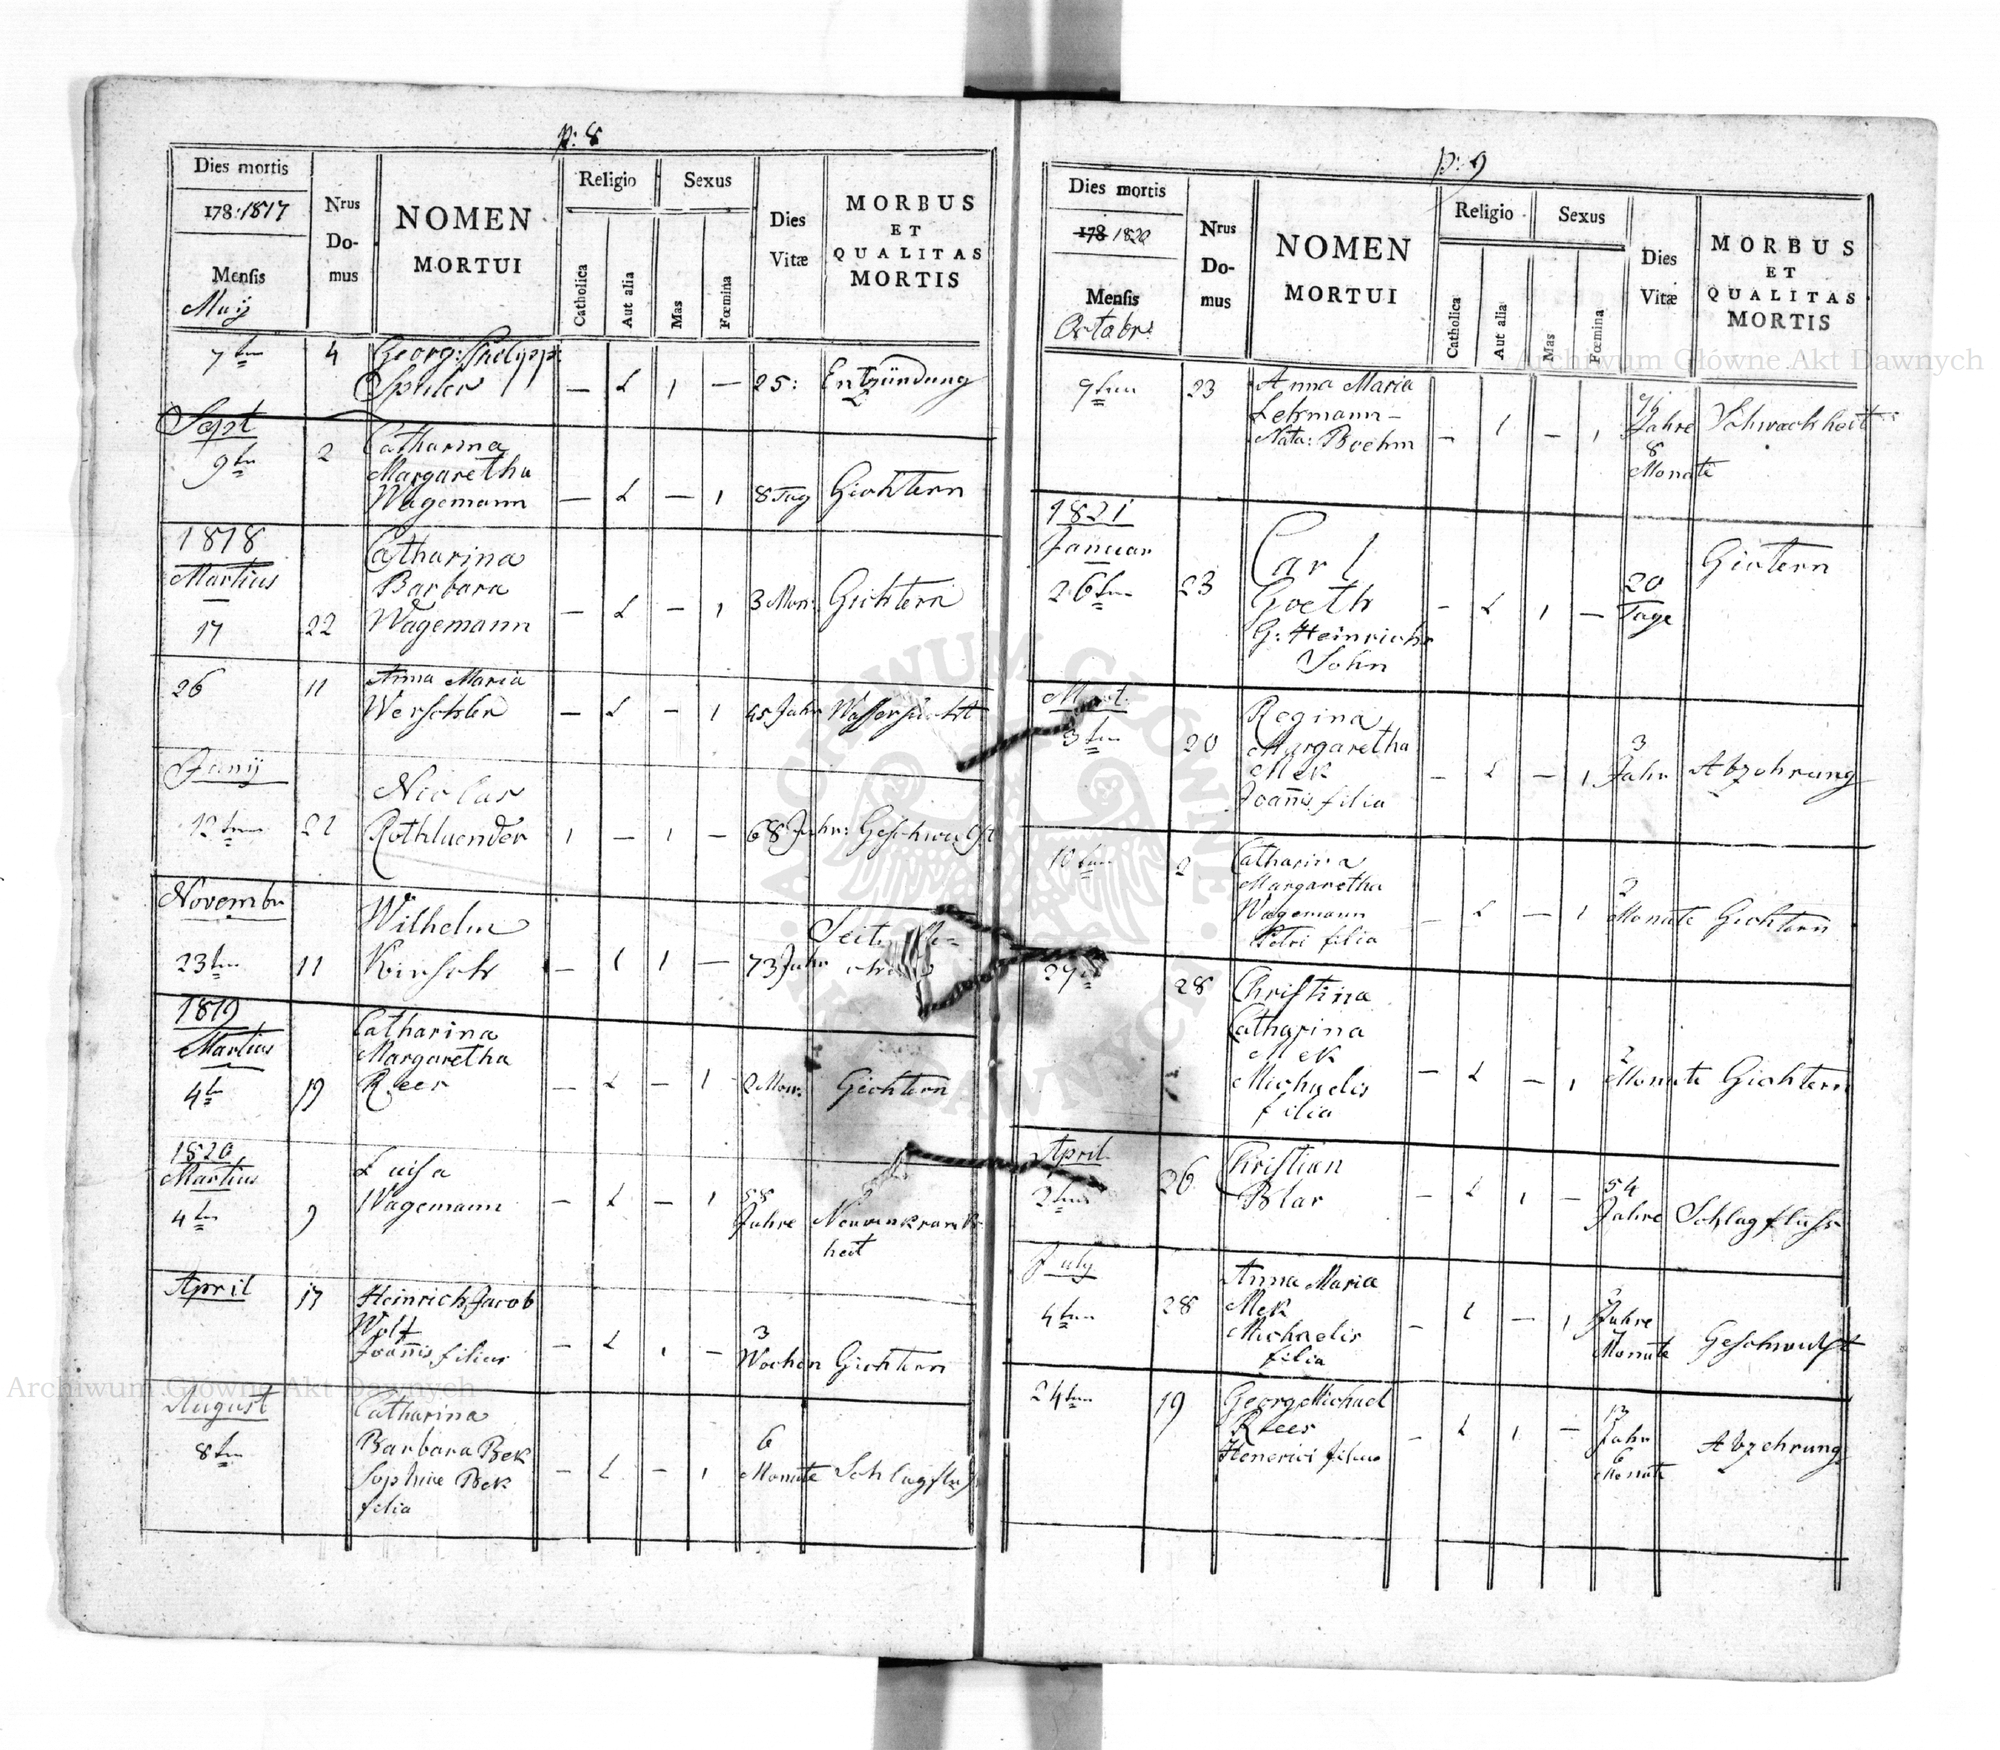 p: 8
Dies mortis
178:1817
Mensis
Maij
Nrus
Do-
mus
NOMEN
MORTUI
Religio
Catholica
Aut alia
Sexus
Mas
Fœmina
Dies
Vitæ
MORBUS
ET
QUALITAS
MORTIS
7ten 4 Georg: Philipp:
— L 1 — 25: Entzündung
Sept
9ten 2 Catharina
Margaretha
Wagemann — L — 1 8 Tag Gichtern
1818
Martius
17 22 Catharina
Barbara
Wagemann — L — 1 3 Mon: Gichtern
26 11 Anna Maria
— L — 1 45 Jahr Wassersucht
Junij
12ten 21 Nicolas
Rothlaender 1 — 1 — 68 Jahr: Geschwulst
Novembr
23ten 11 Wilhelm
Kirsch — 1 1 — 73 Jahr
1819
Martius
4ten 19 Catharina
Margaretha
Rees — L — 1 2 Mon: Gichtern
1820
Martius
4ten 9 Luisa
Wagemann — L — 1 58
Jahre Nervenkrank
heit
April 17 Heinrich Jacob
Wolf
Joañis filius — L 1 — 3
Wochen Gichtern
August
8ten Catharina
Barbara Bek
Sophiae Bek
filia — L — 1 6
Monate Schlagfluß
p: 9
Dies mortis
178 1820
Mensis
Octobr:
Nrus
Do-
mus
NOMEN
MORTUI
Religio
Catholica
Aut alia
Sexus
Mas
Fœmina
Dies
Vitæ
MORBUS
ET
QUALITAS
MORTIS
9ten 23 Anna Maria
Lehmann —
Nata: Boehm — 1 — 1 Jahre
8
Monate Schwachheit
1821
Januar
26ten 23 Carl
Goeth
G: Heinrichs
Sohn — L 1 — 20
Tage Gichtern
Mart.
3ten 20 Regina
Margaretha
Mek
Joañis filia — L — 1 3
Jahr Abzehrung
10ten 2 Catharina
Margaretha
Wagemann
Petri filia — L — 1 2
Monate Gichtern
27 28 Christina
Catharina
Mek
Michaelis
filia — L — 1 2
Monate Gichtern
April
2ten 26 Christian
Blar — L 1 — 54
Jahre Schlagfluss
July
4ten 28 Anna Maria
Mek
Michaelis
filia — L — 1 Jahre
Monate Geschwulst
24ten 19 Georg Michael
Rees
Henerici filius — L 1 — 13
Jahr
6
Monate Abzehrung
Archiwum Główne Akt Dawnych
Archiwum Główne Akt Dawnych
ARCHIWUM GŁÓWNE AKT DAWNYCH